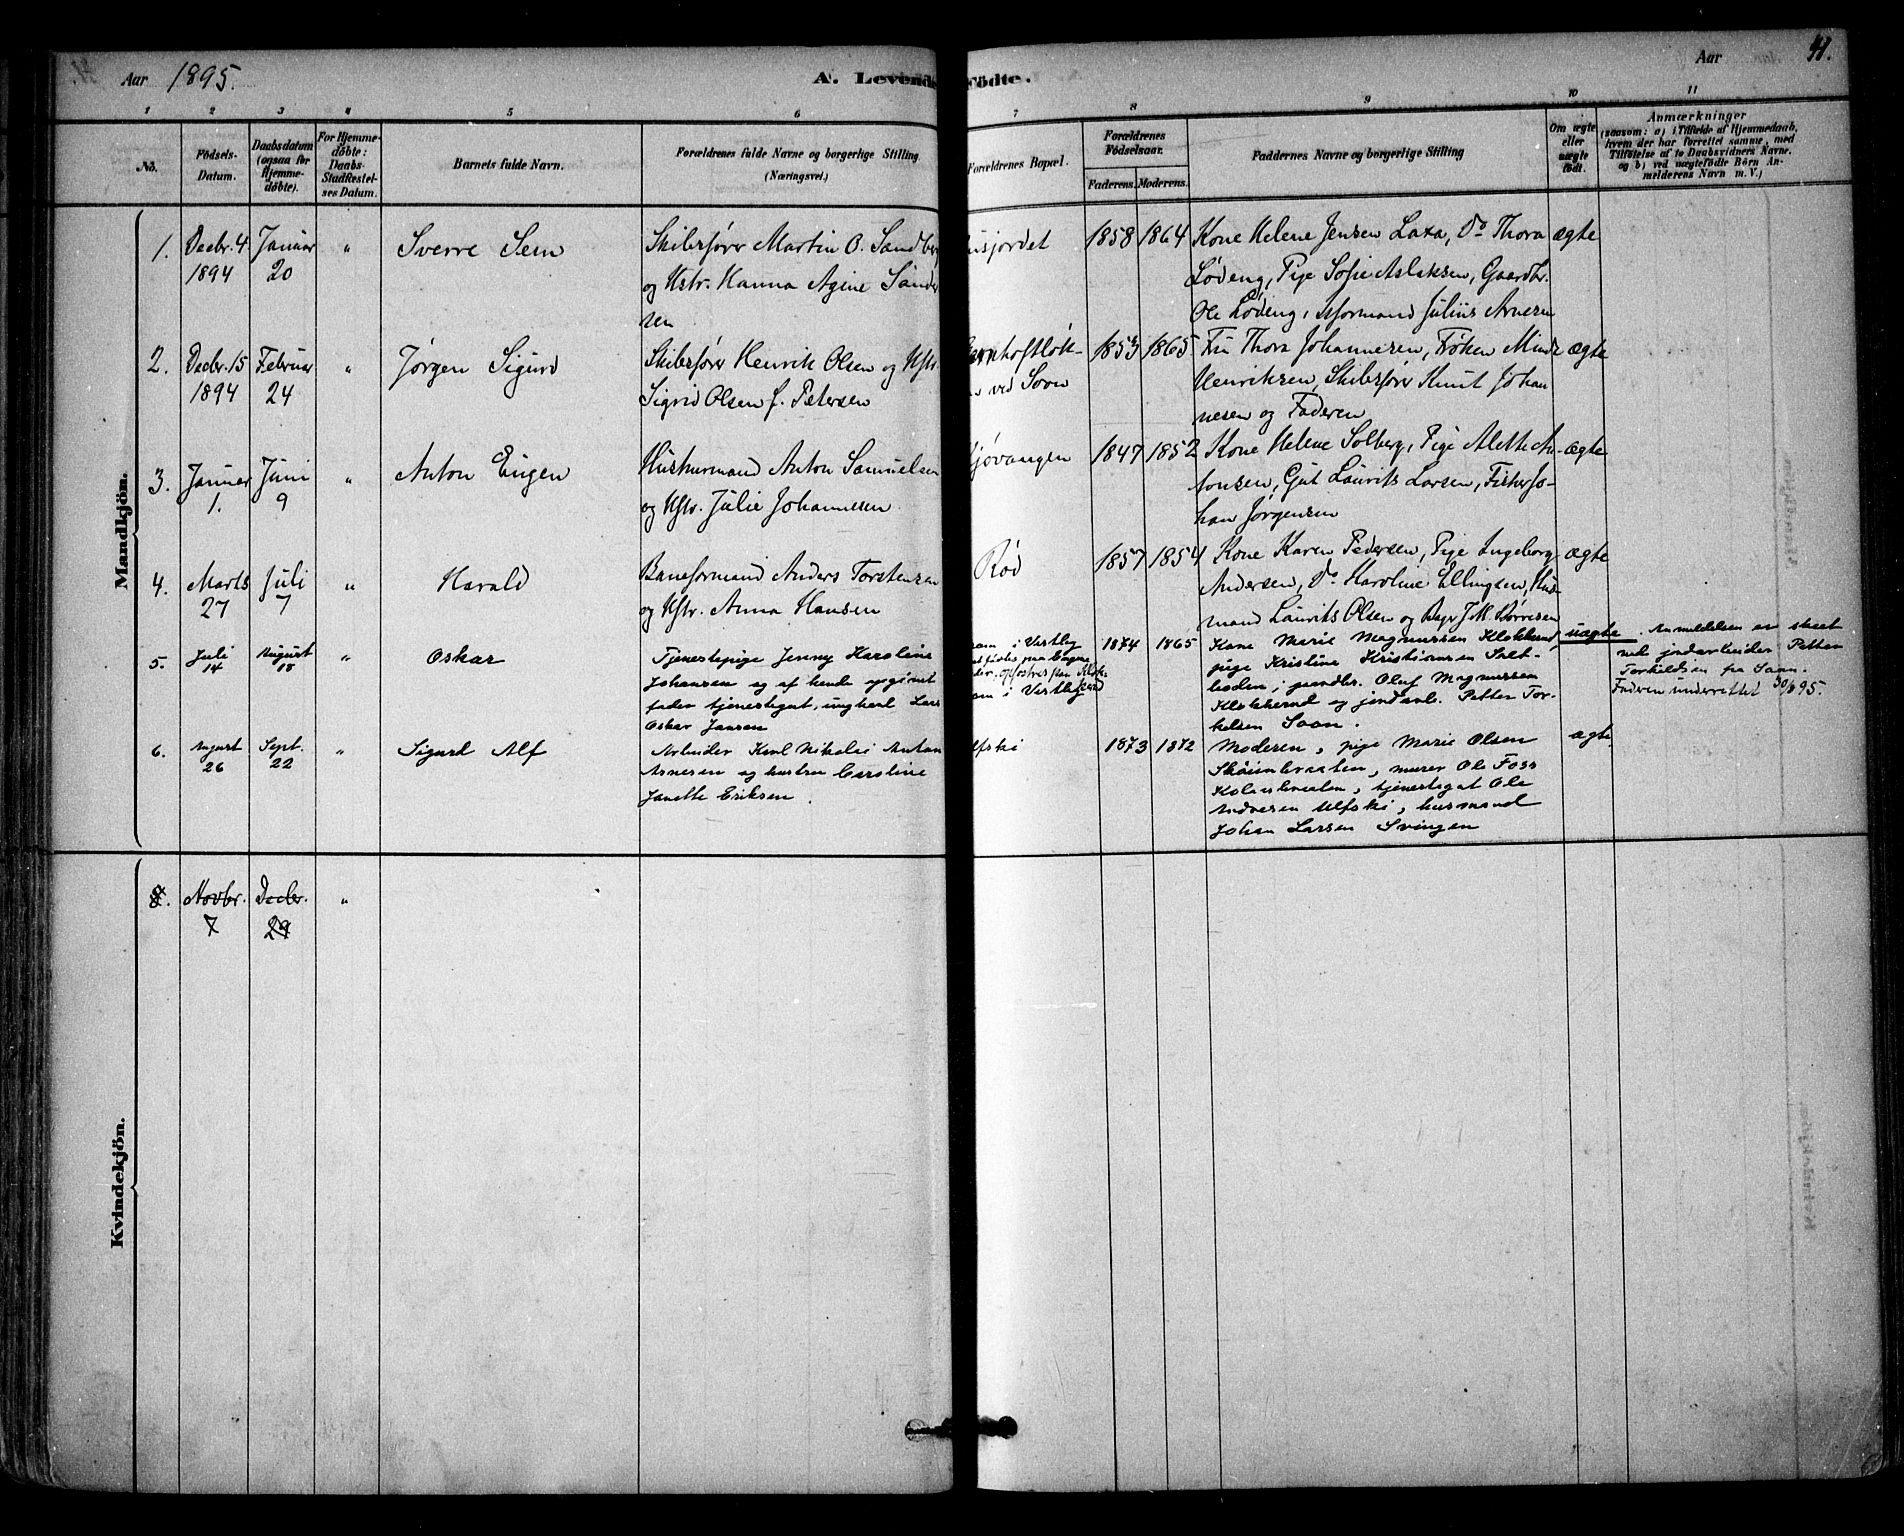 Aar 1895.
A. Levende Fødte.
Aar
41.
1 2 3 4 5 6 7 8 9 10 11
No.
Födsels-
Datum.
Daabsdatum
(ogsaa for
Hjemme-
döbte).
For Hjemme-
döbte:
Daabs-
Stadfæstel-
ses Datum.
Barnets fulde Navn.
Forældrenes fulde Navne og borgerlige Stilling
(Næringsvei.)
Forældrenes Bopæl.
Forældrenes
Födselsaar.
Faderens. Moderens.
Faddernes Navne og borgerlige Stilling
Om ægte
eller
uægte
födt.
Anmærkninger
(saasom: a) i Tilfælde af Hjemmedaab,
hvem der har forrettet samme, med
Tilföielse af to Daabsvidners Navne.
og b) ved uægtefödte Börn An-
melderens Navn m. V.)
Mandkjön.
1. Decbr. 4
1894
Januar
20
"
Sverre Sem
Skibsfører Martin O. Sandberg
og Hstr. Hanna Agine Sander
sen
usjordet
1858 1864
Kone Helene Jensen Laxa, Do Thora
Lødeng, Pige Sofie Aslaksen, Gaardbr.
Ole Lødeng, Formand Julius Arnesen
ægte
2. Decbr. 15
1894
Februar
24
"
Jørgen Sigurd
Skibsfører Henrik Olsen og Hstr.
Sigrid Olsen f. Petersen
ved Soon
1853 1865
Fru Thora Johannesen, Frøken Minda
Henriksen, Skibsfører Knut Johan
nesen og Faderen
ægte
3. Januar
1.
Juni
9
"
Anton Eugen
Husmand Anton Samuelsen
og Hstr. Julie Johannesen
jøvangen
1847 1852
Kone Helene Solberg, Pige Alette An-
tonsen, Gut Laurits Larsen, Fisker Jo-
han Jørgensen
ægte
4. Marts
27
Juli
7
"
Harald
Baneformand Anders Torstensen
og Hstr. Anna Hansen
Rød
1857 1854
Kone Karen Pedersen, Pige Ingeborg
Andersen, Do Karoline Ellingsen, Hus-
mand Laurits Olsen og Bager J. M. Børresen
ægte
5. Juli
14
August
18
"
Oskar
Tjenestepige Jenny Karoline
Johansen og af hende opgivet
fader tjenestegut, ungkarl Lars
Oskar Jansen
i Vestby
i Vestby
1874 1865
Kone Marie Magnussen Klokkerud
pige Kristine Kristiansen Salt-
boden, gaardbr. Oluf Magnussen
Klokkerud og jordarb. Petter Tor-
kelsen Soon.
uægte
Anmeldelsen er skeet
ved jordarbeider Petter
Torkildsen fra Soon.
Faderen underrettet 30/8 95.
6. August
26
Sept.
22
"
Sigurd Alf
Arbeider Karl Nikolai Anton
Arnesen og hustru Caroline
Janette Eriksen.
Ulfski
1873 1872
Moderen, pige Marie Olsen
Skoienbraaten, murer Ole Foss
Kolaasbraaten, tjenestegut Ole
Andresen Ulfski, husmand
Johan Larsen Svingen
ægte.
Kvindekjön.
8. Novbr.
7
Decbr.
29
"